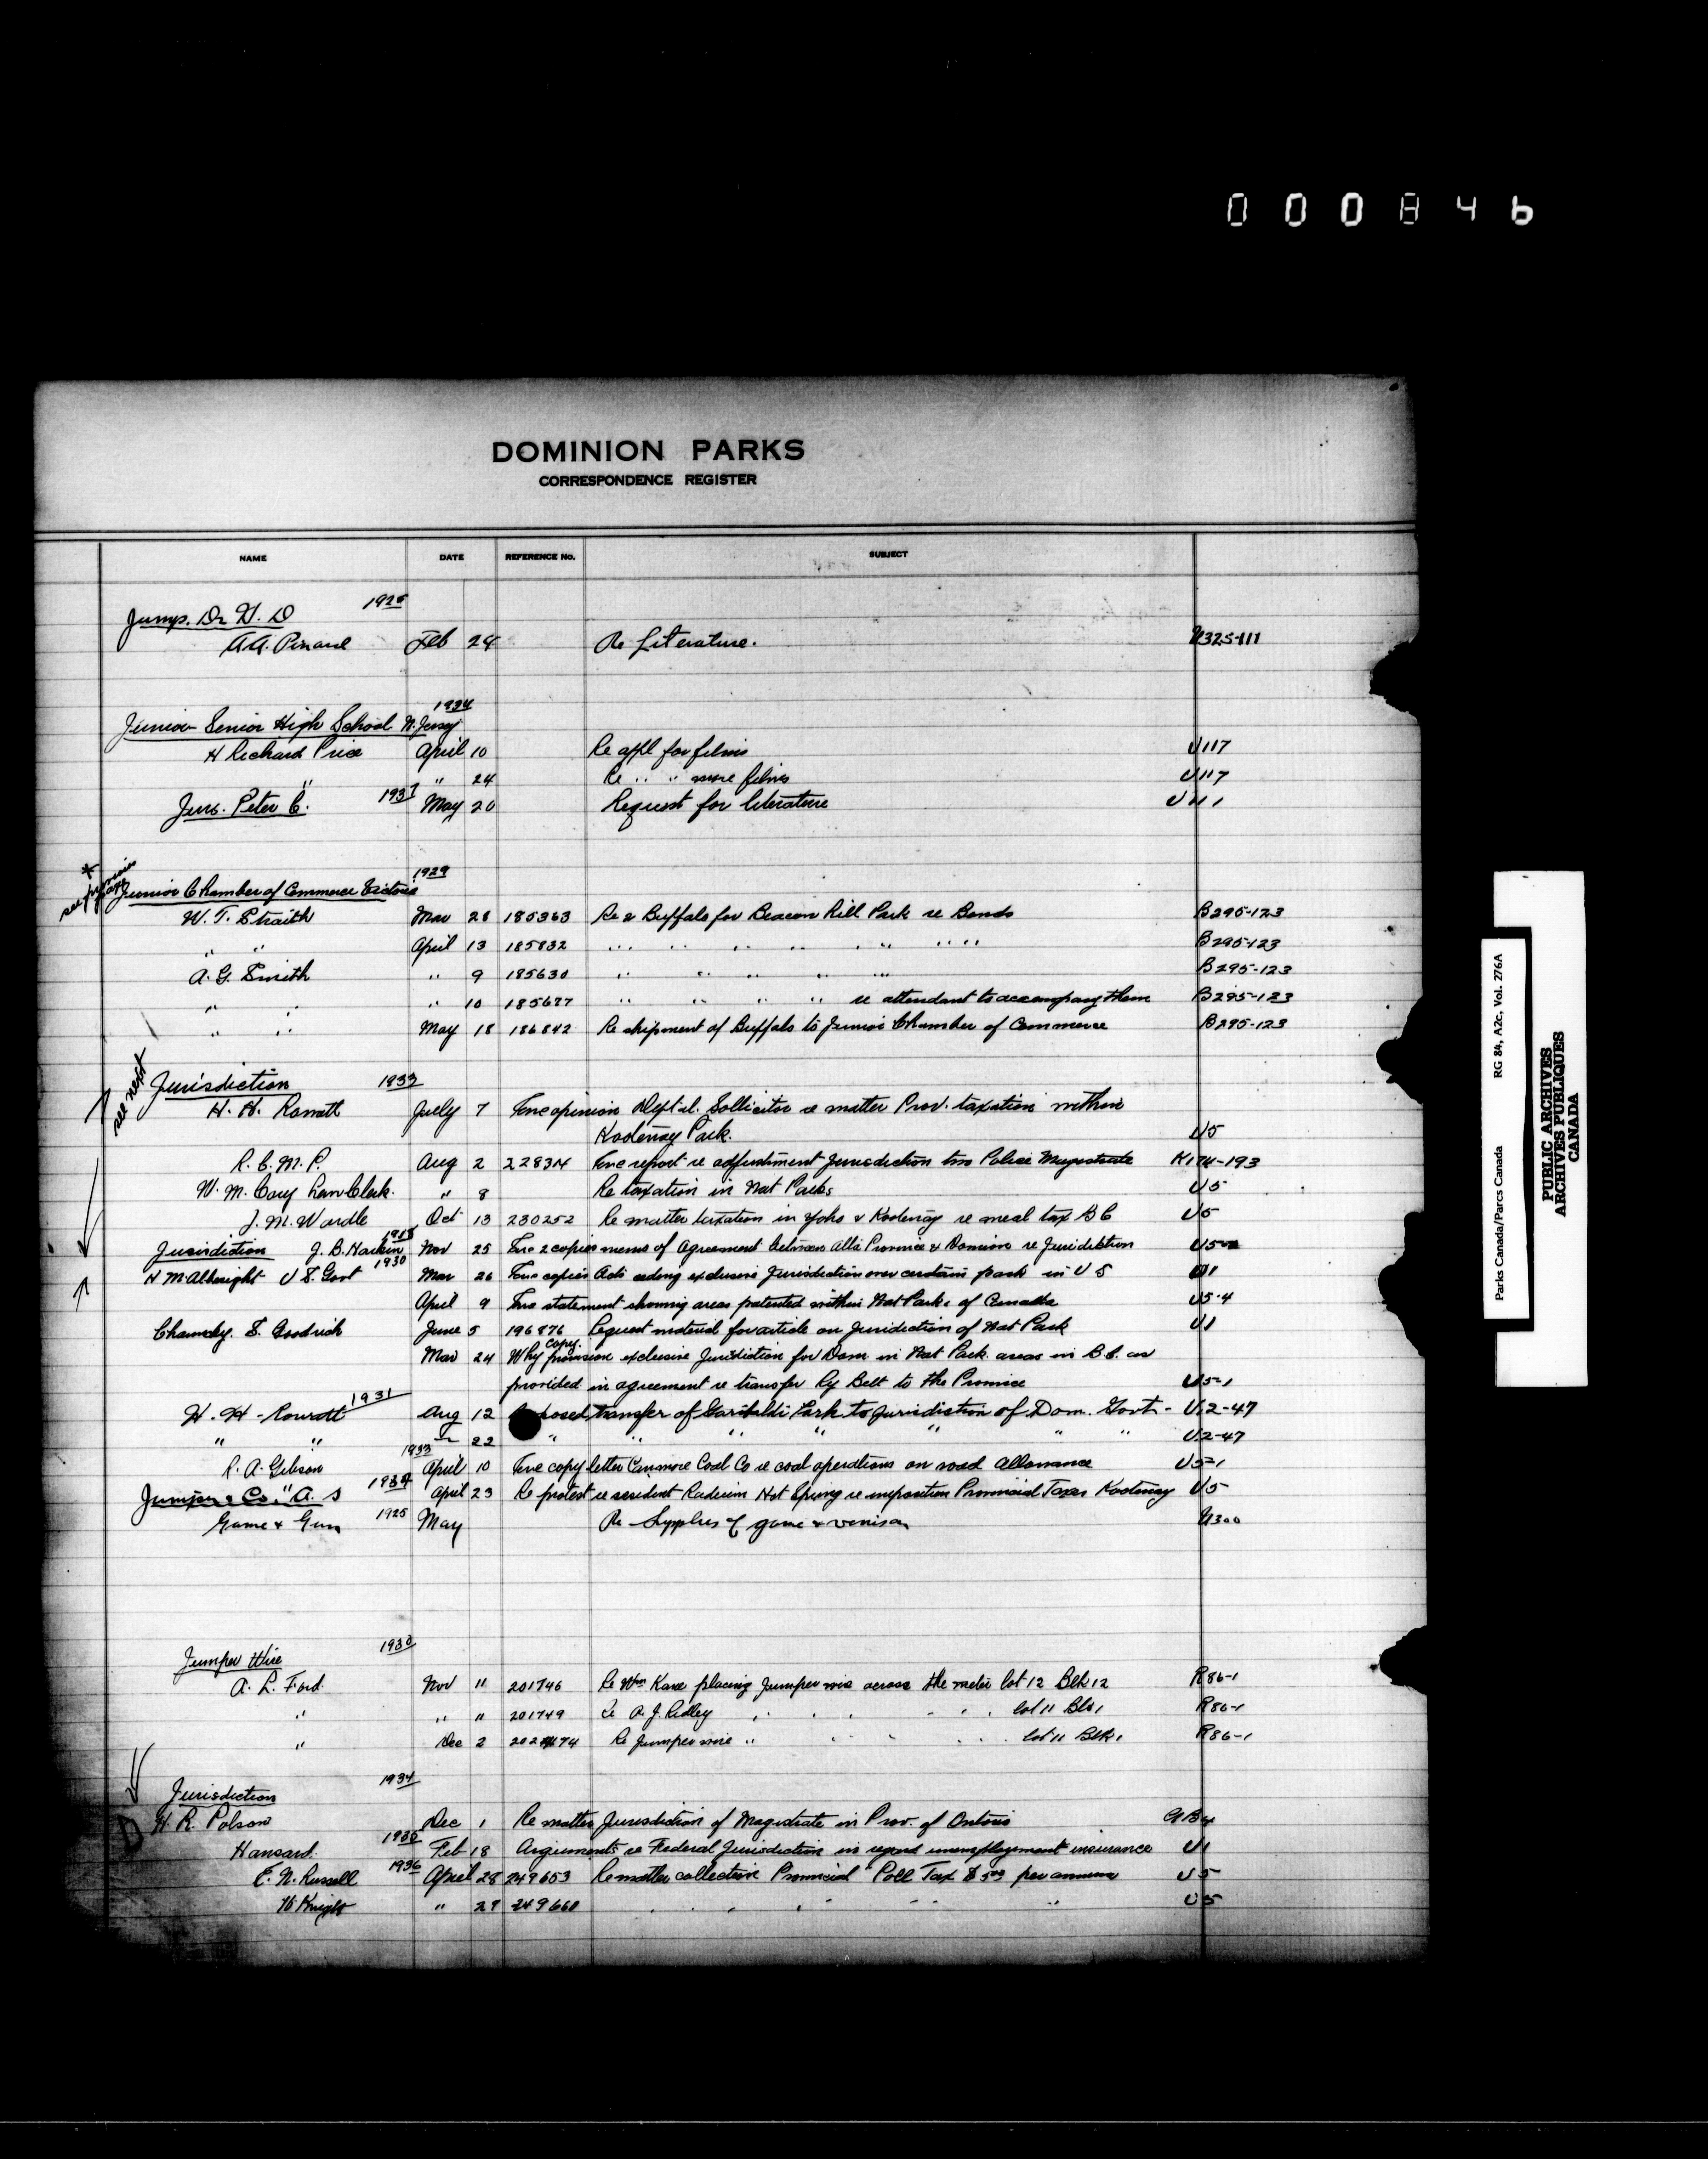 000846
DOMINION PARKS
CORRESPONDENCE REGISTER
NAME DATE REFERENCE No. SUBJECT
Jump. Dr H. D 1925
A.A. Pinard Feb 24 Re Literature. U325-111
Junior Senior High School N. Jersey 1934
H Richard Price April 10 Re appl for films U117
" " 24 Re " " more films U117
Jurs. Peter C. 1937 May 20 Request for literature U111
* see previous page
Junior Chamber of Commerce Victoria 1929
W. T. Straith Mar 28 185363 Re 2 Buffalo for Beacon Hill Park re Bonds B295-123
" " April 13 185832 " " " " " " " " B295-123
A. G. Smith " 9 185630 " " " " " B295-123
" " " 10 185677 " " " " re attendant to accompany them B295-123
" " May 18 186842 Re shipment of Buffalo to Junior Chamber of Commerce B295-123
see next
Jurisdiction 1933
H. H. Rowatt July 7 opinion Deptal. Sollicitor re matter Prov. taxation within
Kootenay Park. U5
R. C. M. P. Aug 2 22834 report re adjustment Jurisdiction two Police Magistrate K174-193
W. M. Cory Law Clerk. " 8 Re taxation in Nat Parks U5
J. M. Wardle Oct 13 230252 Re matter taxation in Yoho & Kootenay re meal tax B C U5
Jurisdiction J. B. Harkin Nov 25 2 copies memo of Agreement between Alta Province & Domion re Jurisdiction U5
H M Albright U S. Govt 1930 Mar 26 copies Acts ceding exclusive Jurisdiction over certain park in U S U1
April 9 statement showing areas patented within Nat Parks of Canada U5-4
Chauncey. S. Goodrich June 5 196876 Request material for article on Jurisdiction of Nat Park U1
Mar 24 Why copy. provision exclusive Jurisdiction for Dom in Nat Park areas in B.C. as
provided in agreement re transfer Ry Belt to the Province U5-1
H. H. Rowatt 1931 Aug 12 transfer of Garibaldi Park to Jurisdiction of Dom. Govt - U.2-47
" " 22 " " " " " " " U.2-47
R. A. Gibson 1933 April 10 copy letter Canmore Coal Co re coal operations on road allowance U5-1
" 1934 April 23 Re protest re resident Radium Hot Spring re imposition Provincial Taxes Kootenay U5
Jumper & Co. A. S
Game & Gun 1925 May Re Supplies of game & venison U300
Jumper Wire 1930
A. L. Ford. Nov 11 201746 Re Wm Kane placing Jumper wire across the meter lot 12 Blk 12 R86-1
" " 11 201749 Re A. J. Ridley " " " " " " lot 11 Blk 1 R86-1
" Dec 2 Re Jumper wire " " " " " lot 11 Blk 1 R86-1
Jurisdiction 1934
H. R. Polson Dec 1 Re matter Jurisdiction of Magistrate in Prov. of Ontario
Hansard. 1935 Feb 18 Arguments re Federal Jurisdiction in regard unemployment insurance U1
E. N. Russell 1936 April 28 249653 Re matter collection Provincial "Poll Tax $5.00 per annum U5
H Knight " 29 249660 " " " " " " U5
Parks Canada/Parcs Canada RG 84, A2c, Vol. 276A
PUBLIC ARCHIVES
ARCHIVES PUBLIQUES
CANADA